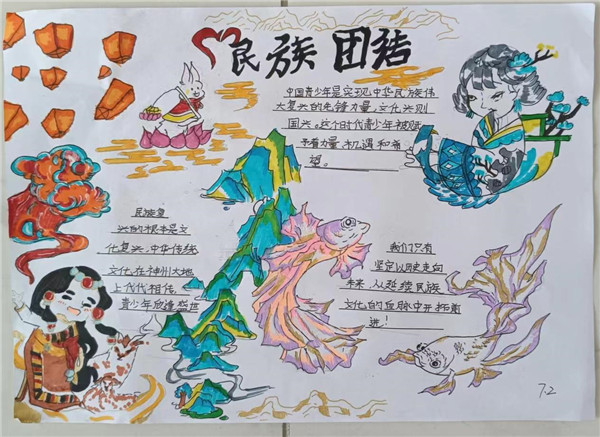 民族团结
中国青少年是实现中华民族伟
大复兴的先锋力量,文化兴则
国兴。这个时代青少年被赋
予着力量、机遇和希
望。
民族复
兴的根本是文
化复兴,中华传统
文化在神州大地
上代代相传
青少年应逢盛世
我们只有
坚定从历史走向
未来,从延续民族
文化的血脉中开拓前
进!
7.2